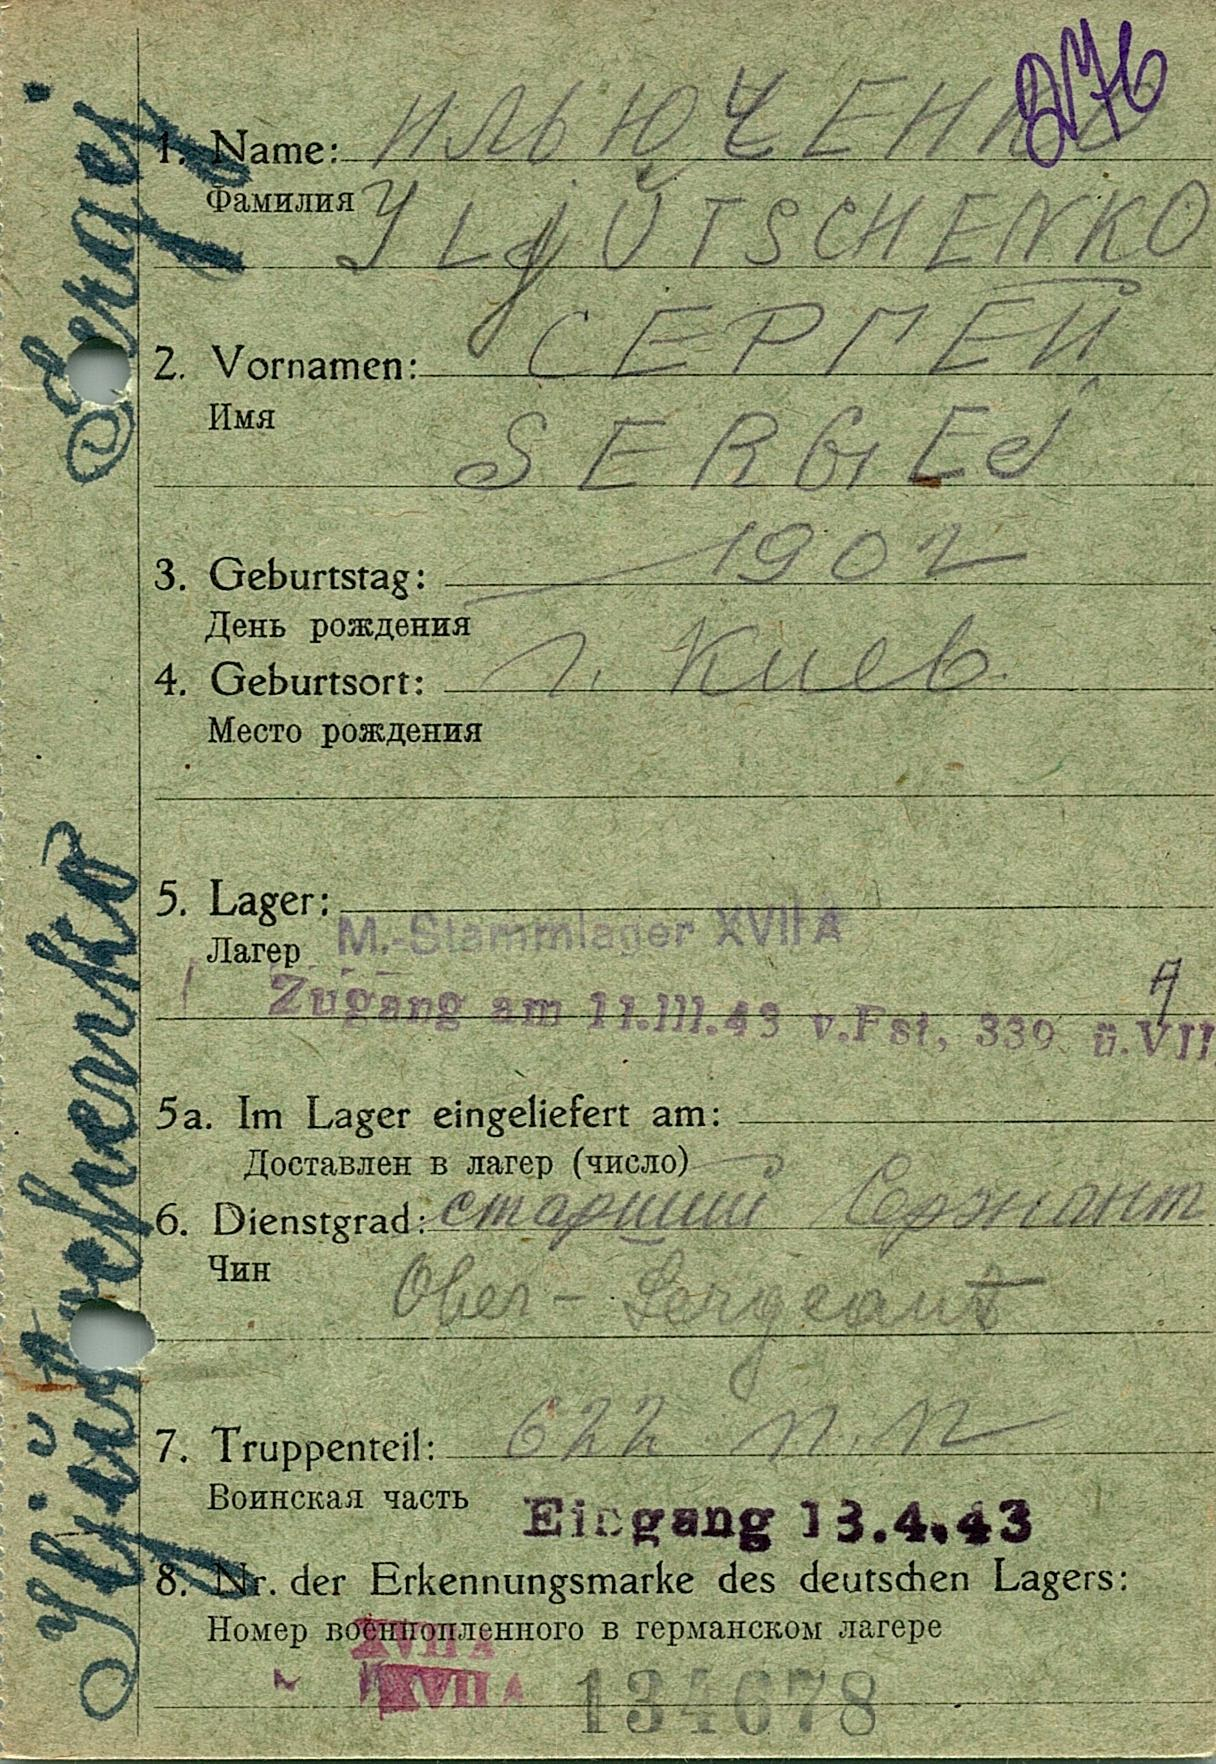 276
1. Name: ИЛЬЮЧЕНКО
Фамилия
YLjÜTSCHENKO
2. Vornamen: СЕРГЕЙ
Имя
SERGEJ
3. Geburtstag: 1902
День рождения
4. Geburtsort: г. Киев.
Место рождения
5. Lager:
Лагер M.-Stammlager XVII A
Zugang am 11.III.43 v.Fst, 330 ü.VII
5a. Im Lager eingeliefert am:
Доставлен в лагер (число)
6. Dienstgrad: старший Сержант
Чин
Ober-Sergeant
7. Truppenteil: 622 п.п
Воинская часть
Eingang 13.4.43
8. Nr. der Erkennungsmarke des deutschen Lagers:
Номер военнопленного в германском лагере
XVII A
XVII A 134678
Iljütschenko Sergej